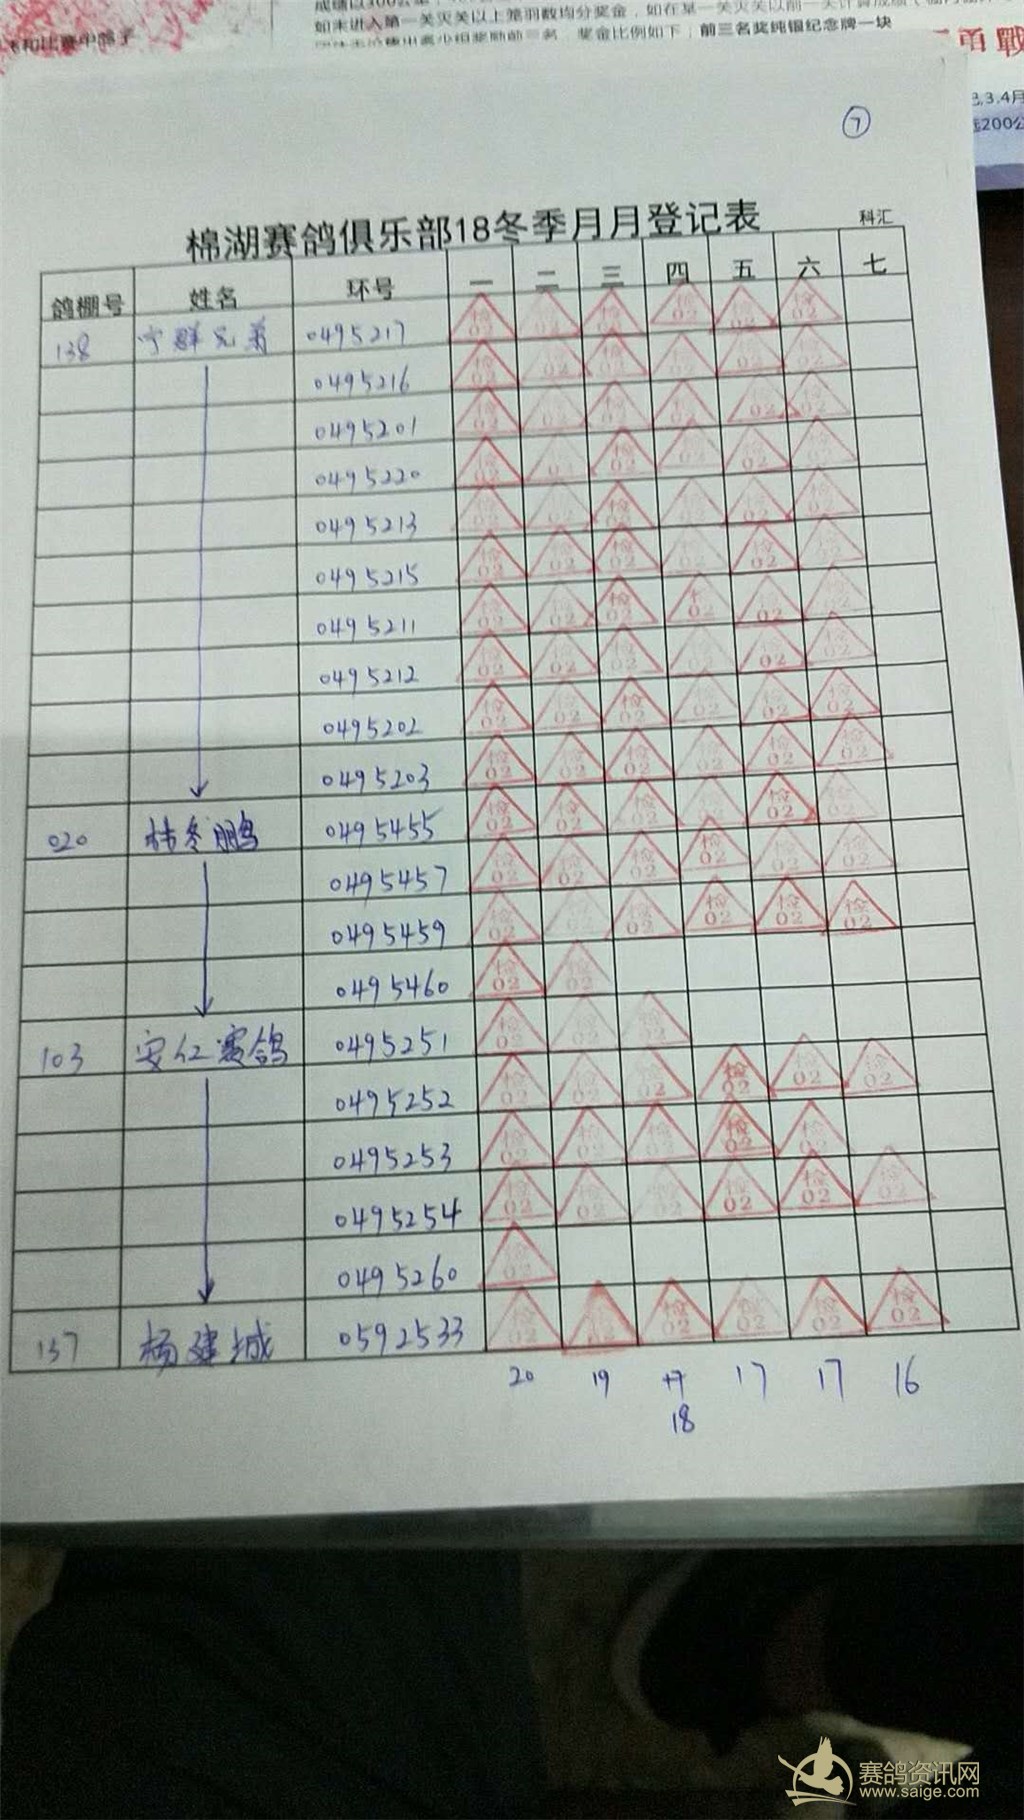 如未进入第一关灭关以上笼羽数均分奖金，如在某一关灭关以前一天计算成绩
前三名奖纯银纪念牌一块
飞和比赛中鸽子
3.4月
200公
7
棉湖赛鸽俱乐部18冬季月月登记表
科汇
鸽棚号 姓名 环号 一 二 三 四 五 六 七
138 宁群兄弟 0495217 检02 检02 检02 检02 检02 检02
0495216 检02 检02 检02 检02 检02 检02
0495201 检02 检02 检02 检02 检02 检02
0495220 检02 检02 检02 检02 检02 检02
0495213 检02 检02 检02 检02 检02 检02
0495215 检02 检02 检02 检02 检02 检02
0495211 检02 检02 检02 检02 检02 检02
0495212 检02 检02 检02 检02 检02 检02
0495202 检02 检02 检02 检02 检02 检02
0495203 检02 检02 检02 检02 检02 检02
020 林冬鹏 0495455 检02 检02 检02 检02 检02 检02
0495457 检02 检02 检02 检02 检02 检02
0495459 检02 检02 检02 检02 检02 检02
0495460 检02 检02
103 安仁赛鸽 0495251 检02 检02 检02
0495252 检02 检02 检02 检02 检02 检02
0495253 检02 检02 检02 检02 检02
0495254 检02 检02 检02 检02 检02 检02
0495260 检02
137 杨建城 0592533 检02 检02 检02 检02 检02 检02
20 19 17 17 17 16
18
赛鸽资讯网
www.saige.com